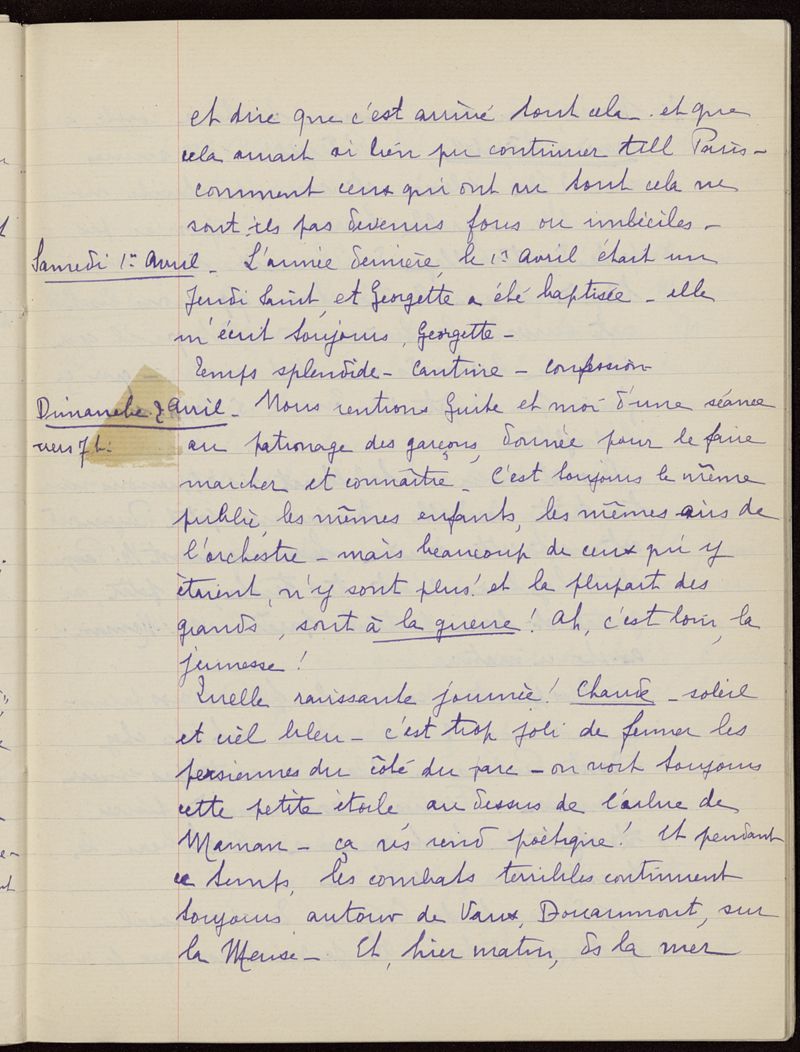 et dire que c'est arrivé tout cela - et que
cela aurait si bien pu continuer till Paris -
comment ceux qui ont vu tout cela ne
sont-ils pas devenus fous ou imbéciles -
Samedi 1er Avril - L'année dernière, le 1er Avril était un
Jeudi Saint, et Georgette a été baptisée - elle
m'écrit toujours, Georgette -
Temps splendide - Cantine - confession
Dimanche 2 Avril - Nous rentrions Guite et moi d'une séance
vers 7 h. au patronage des garçons, donnée pour le faire
marcher et connaître - C'est toujours le même
public, les mêmes enfants, les mêmes airs de
l'orchestre - mais beaucoup de ceux qui y
étaient, n'y sont plus! et la plupart des
grands, sont à la guerre! Ah, c'est loin, la
jeunesse!
Quelle ravissante journée! Chaude - soleil
et ciel bleu - c'est trop joli de fermer les
persiennes du côté du parc - on voit toujours
cette petite étoile au dessus de l'arbre de
Maman - ça vs rend poétique! Et pendant
ce temps, les combats terribles continuent
toujours autour de Vaux, Douaumont, sur
la Meuse - Et, hier matin, ds la mer